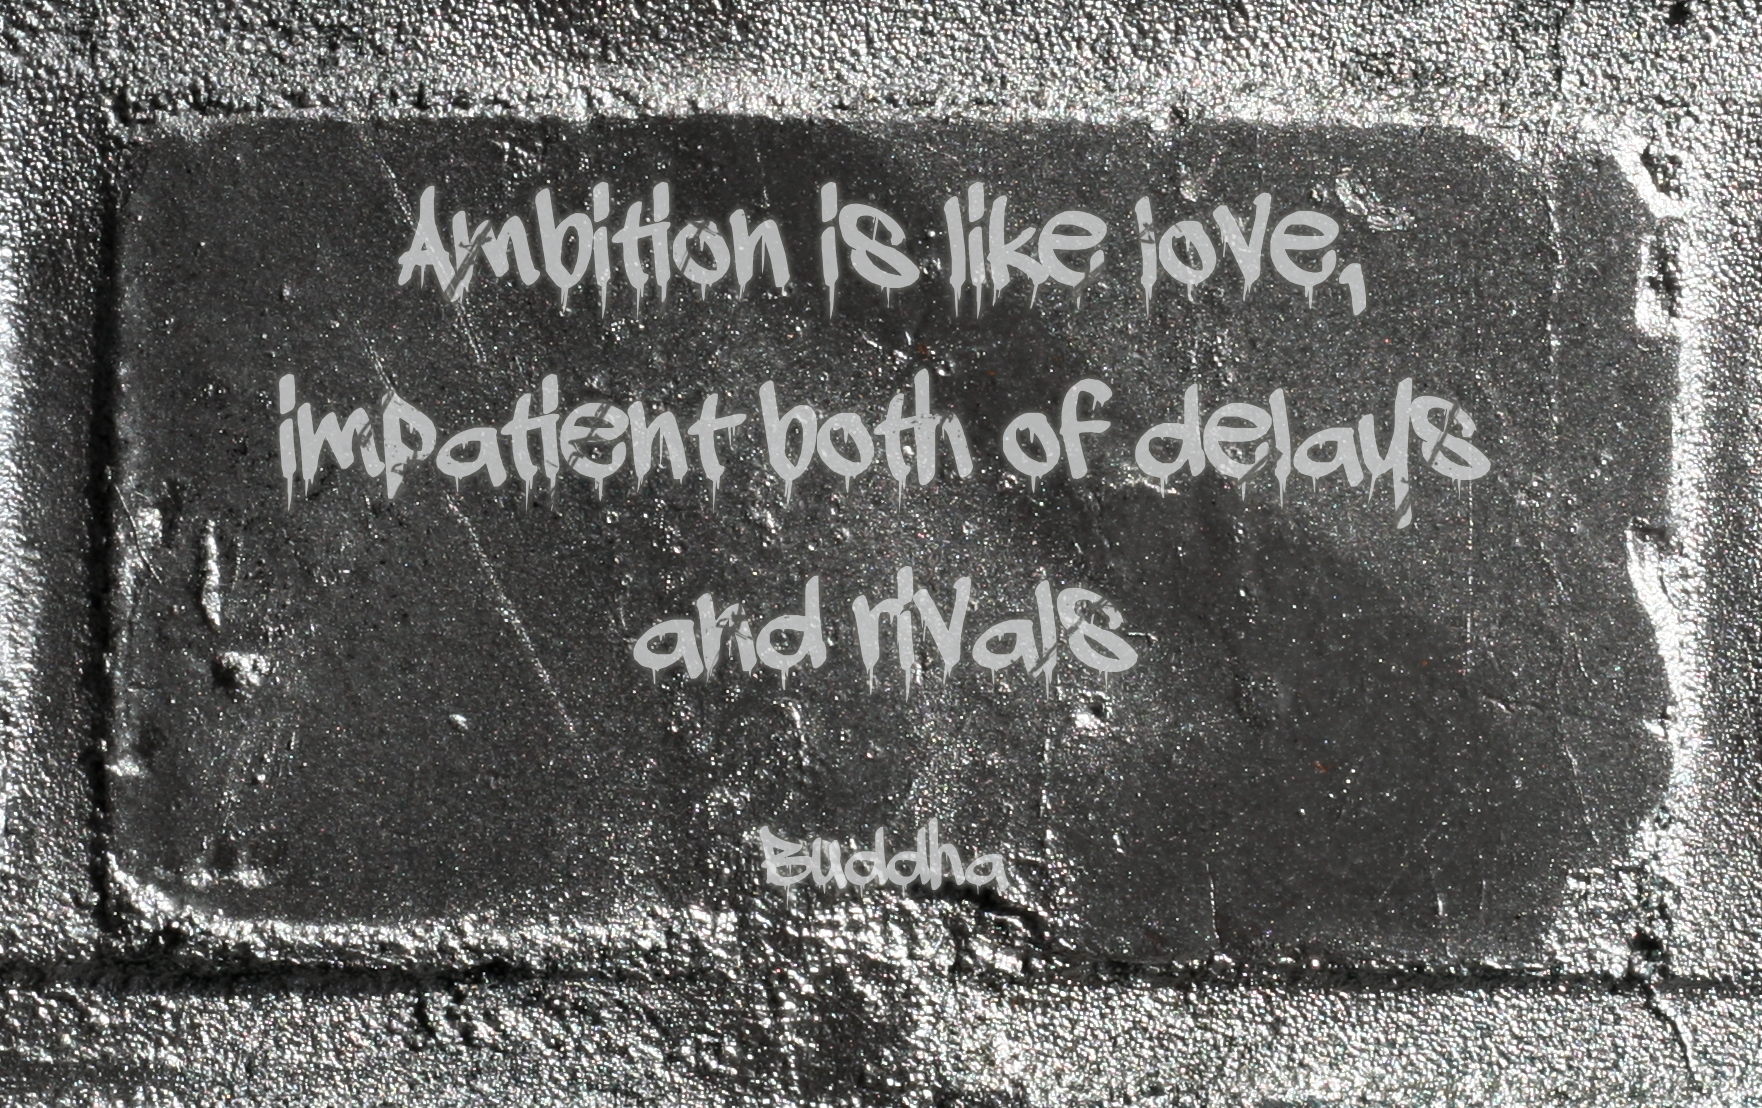 Ambition is like love,
impatient both of delays
and rivals
Buddha